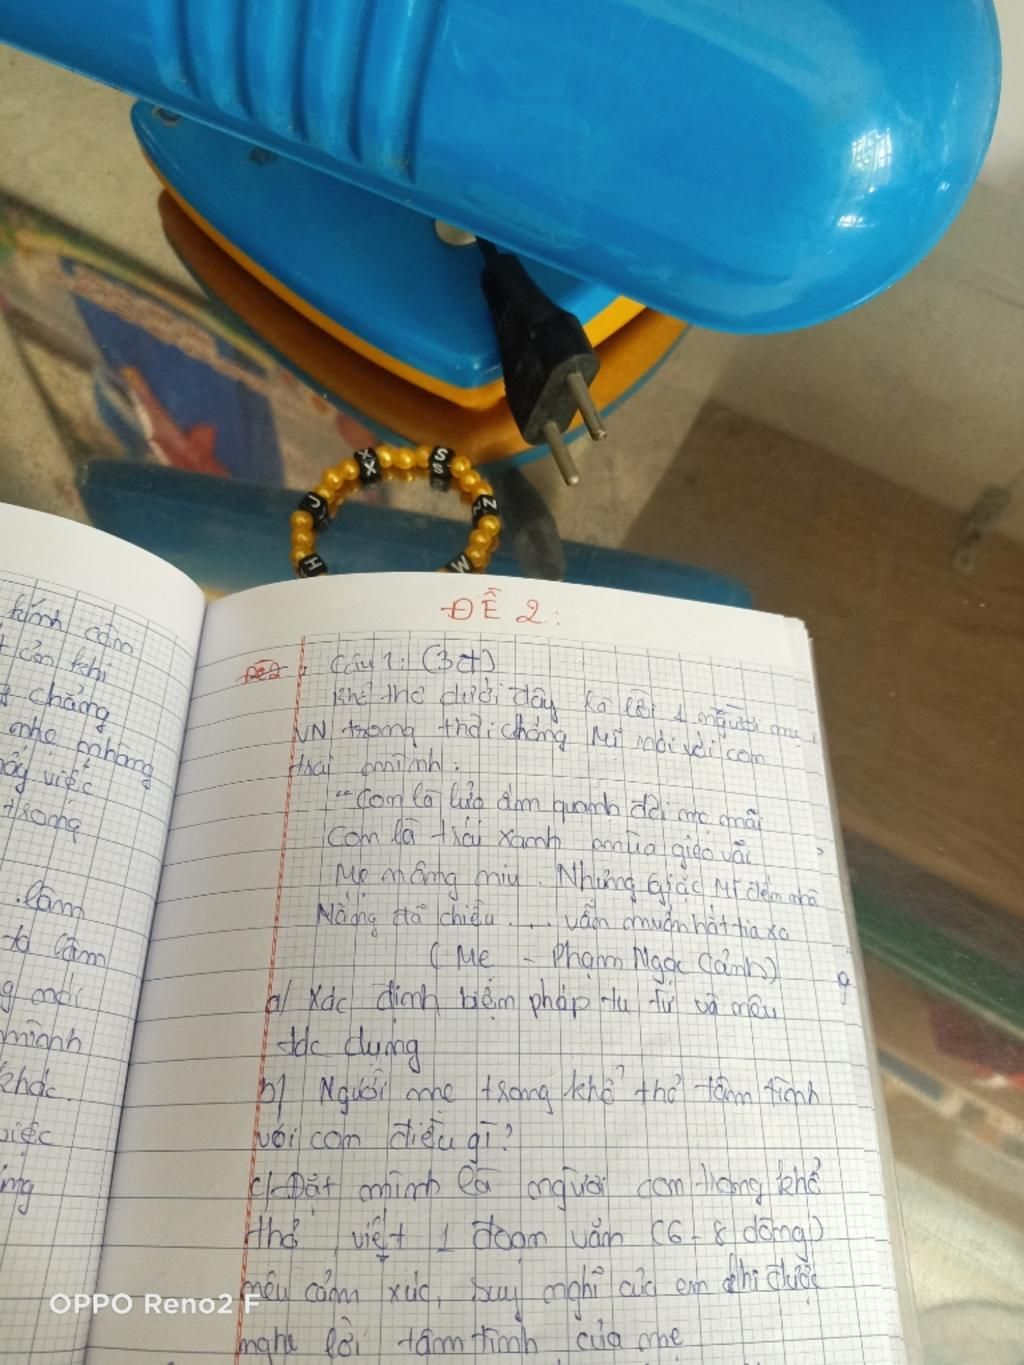 X
X
S
S
U
N
H
M
kính cẩm
t cản khi
chẳng
nhẹ nhàng
việc
trong
làm
ta làm
g mới
mình
khác.
việc
ĐỀ 2:
Đề 2
Câu 1: (3đ)
Khổ thơ dưới đây là lời 1 người mẹ
VN trong thời chống Mĩ nói với con
trai mình.
"Con là lửa ấm quanh đời mẹ mãi
Con là trái xanh mùa gieo vãi
Mẹ nâng niu. Những giặc Mĩ đến nhà
Nắng đã chiều .... vẫn muốn hắt tia xa
(Mẹ - Phạm Ngọc Cảnh)
a/ Xác định biện pháp tu từ và nêu
tác dụng
b/ Người mẹ trong khổ thơ tâm tình
với con điều gì?
c/ Đặt mình là người con trong khổ
thơ, viết 1 đoạn văn (6-8 dòng)
nêu cảm xúc, suy nghĩ của em khi được
nghe lời tâm tình của mẹ
OPPO Reno2 F